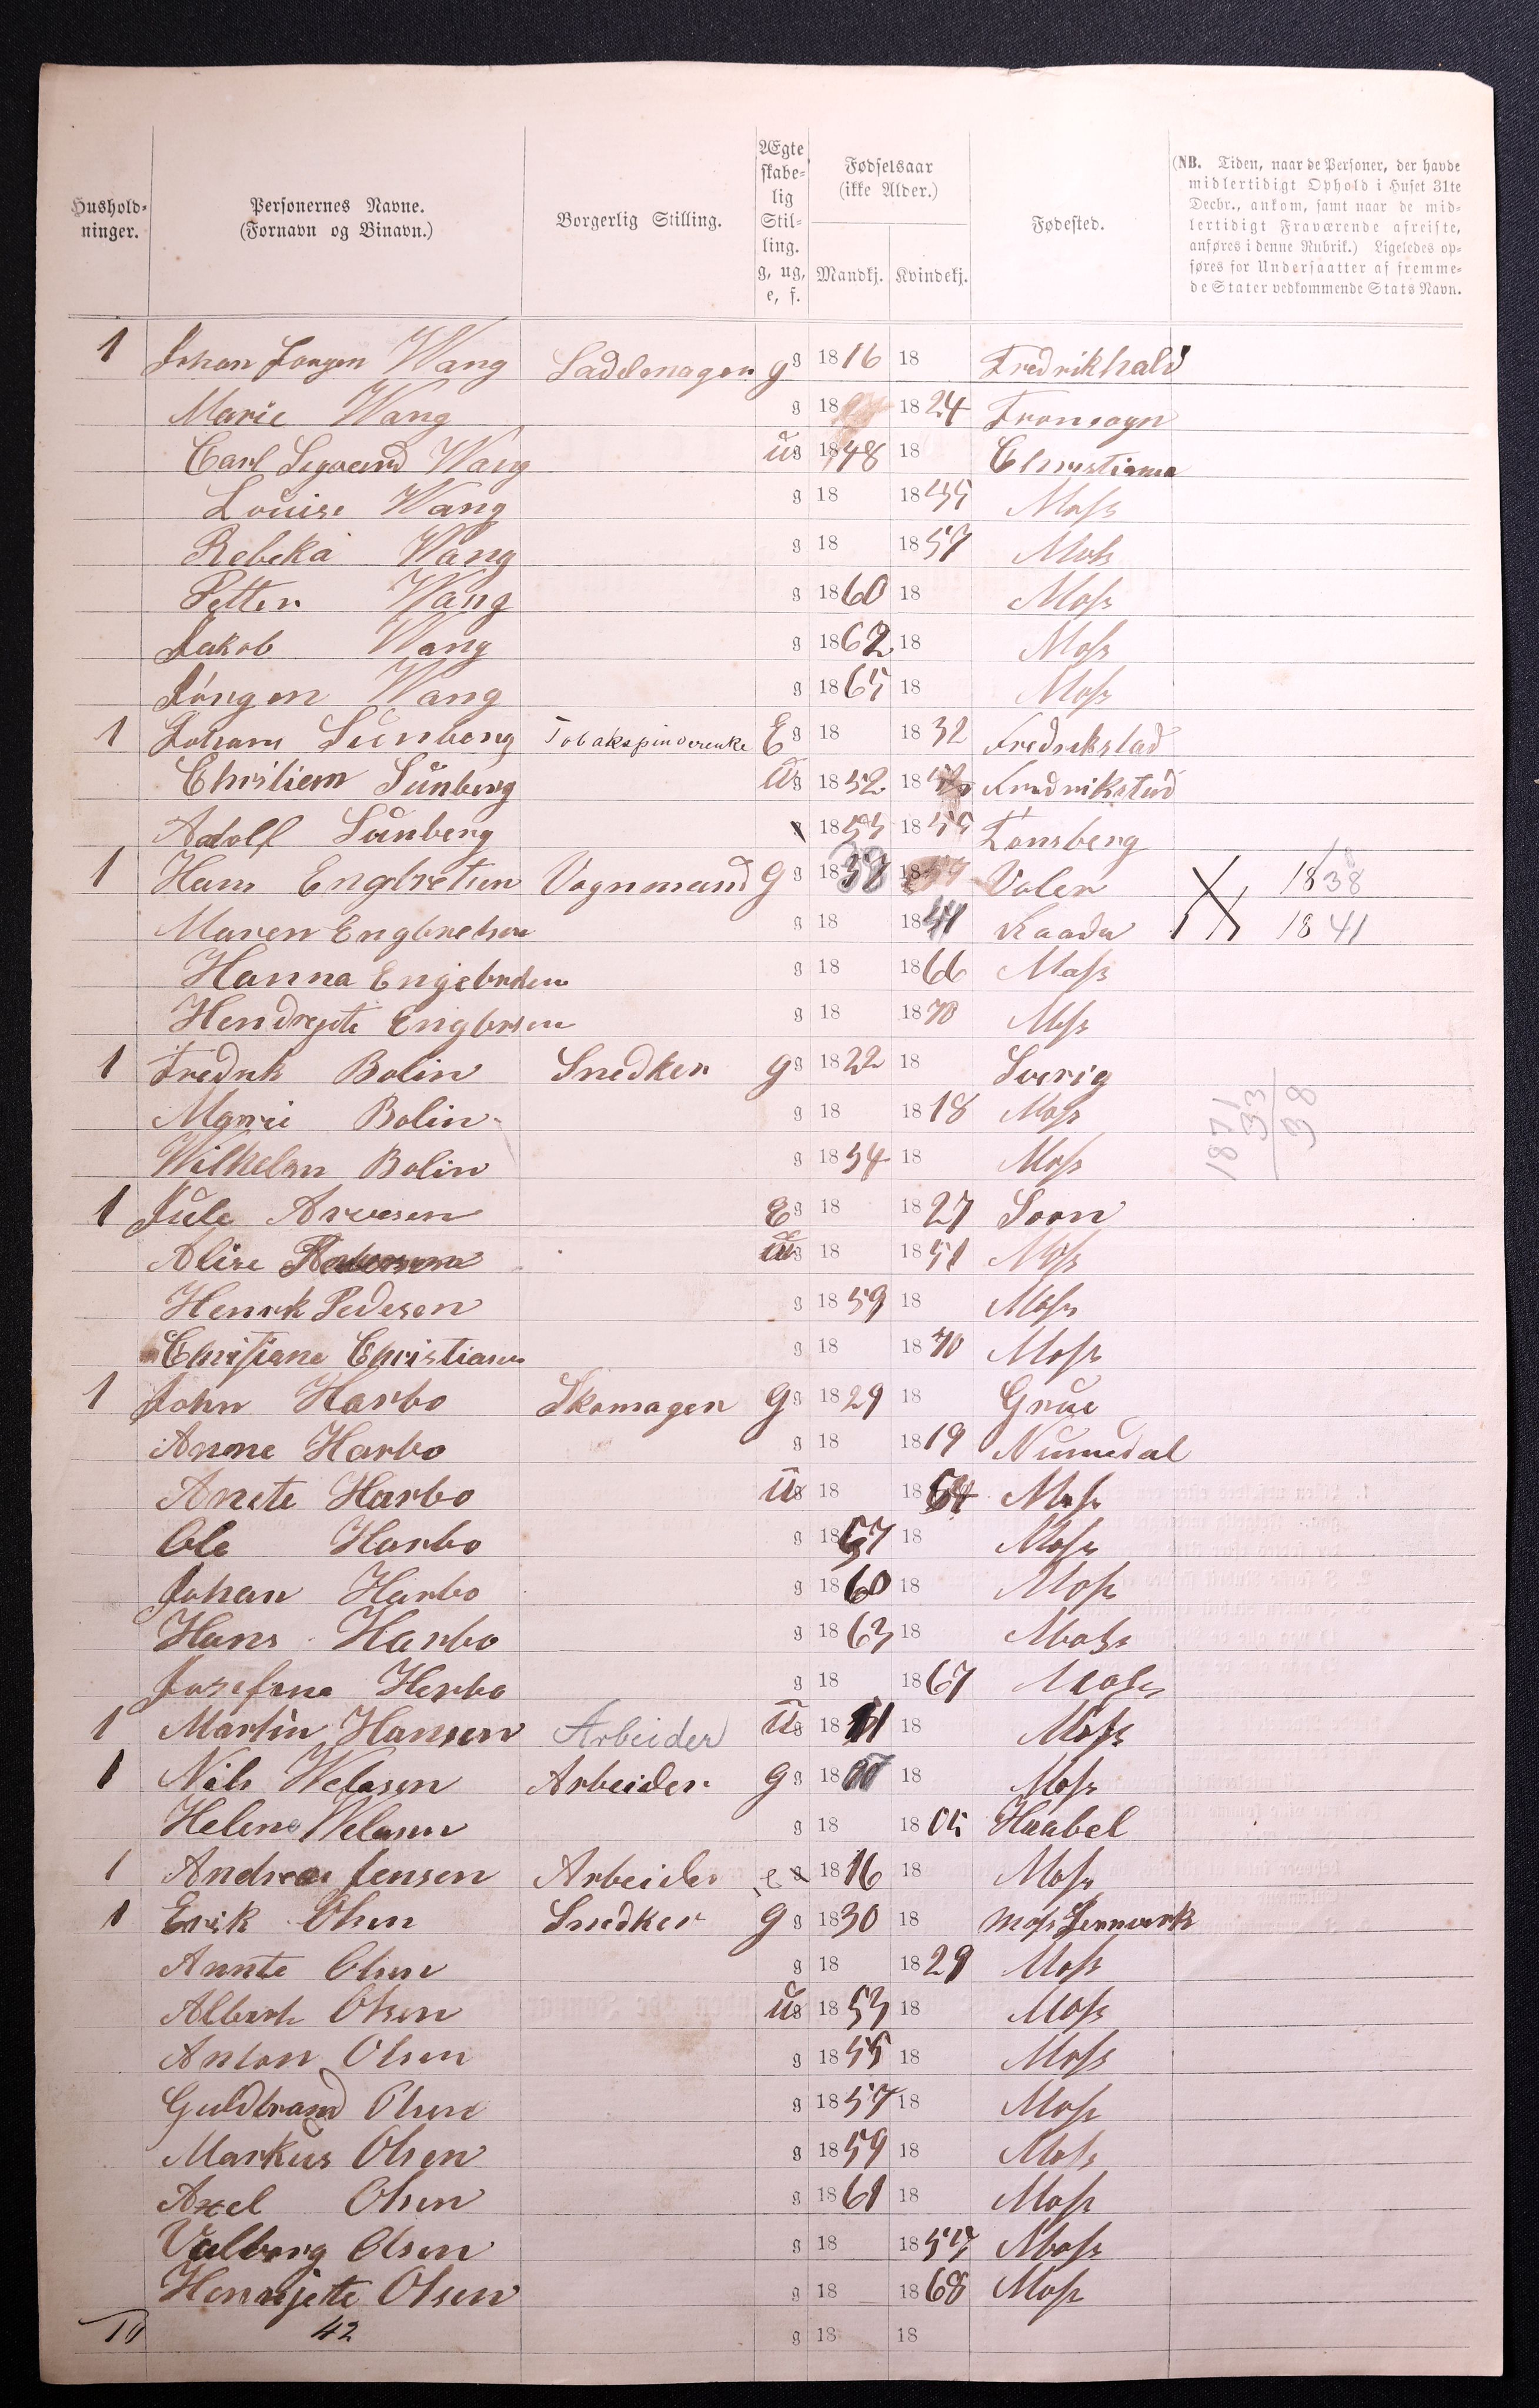 Hushold-
ninger.
Personernes Navne.
(Fornavn og Binavn.)
Borgerlig Stilling.
Ægte
skabe-
lig
Stil-
ling.
g, ug,
e, f.
Fødselsaar
(ikke Alder.)
Mandkj. Kvindekj.
Fødested.
(NB. Tiden, naar de Personer, der havde
midlertidigt Ophold i Huset 31te
Decbr., ankom, samt naar de mid-
lertidigt Fraværende afreiste,
anføres i denne Rubrik.) Ligeledes op-
føres for Undersaatter af fremme-
de Stater vedkommende Stats Navn.
1 Johan Jørgen Wang Sadelmager g g 1816 18 Fredrikhald
Marie Wang g 18 1824 Fronsogn
Carl Sigvard Wang u g 1848 18 Christiania
Louise Wang g 18 1855 Moss
Rebeka Wang g 18 1857 Moss
Petter Wang g 1860 18 Moss
Jakob Wang g 1862 18 Moss
Jörgen Wang g 1865 18 Moss
1 Johane Sünberg Tobakspinderenke E g 18 1832 Fredrikstad
Christian Sünberg U g 1852 18 Fredrikstad
Adolf Sünberg 1855 18 Tönsberg
1 Hans Engbretsen Vognmand G g 1838 18 Valer 1838
Maren Engbretsen g 18 1841 Raade 1841
Hanna Engebretsen g 18 1866 Moss
Hendrejete Engbrsen g 18 1870 Moss
1 Fredrik Bolin Snedker g g 1822 18 Sverig
Marie Bolin g 18 1818 Moss
1871
33
38
Wilhelm Bolin g 1854 18 Moss
1 Jule Arvesen E g 18 1827 Soon
Alise u g 18 1851 Moss
Henrk Pedesen g 1859 18 Moss
Christiane Christians g 18 1870 Moss
1 John Harbo Skomager G g 1829 18 Grue
Anne Harbo g 18 1819 Numedal
Anete Harbo U g 18 1854 Moss
Ole Harbo g 1857 18 Moss
Johan Harbo g 1860 18 Moss
Hans Harbo g 1863 18 Moss
Josefine Harbo g 18 1867 Moss
1 Martin Hansen Arbeider U g 18 18 Moss
1 Nils Welasen Arbeider G g 18 18 Moss
Helene Welasen g 18 1805 Haabel
1 Andreas Jensen Arbeider e 1816 18 Moss
1 Erik Olsen Snedker G g 1830 18 Moss Jernverk
Annte Olsen g 18 1829 Moss
Albert Olsen U g 1853 18 Moss
Anton Olsen g 1855 18 Moss
Guldbrand Olsen g 1857 18 Moss
Markus Olsen g 1859 18 Moss
Axel Olsen g 1861 18 Moss
Valborg Olsen g 18 18 Moss
Henrijette Olsen g 18 1868 Moss
10 42 g 18 18